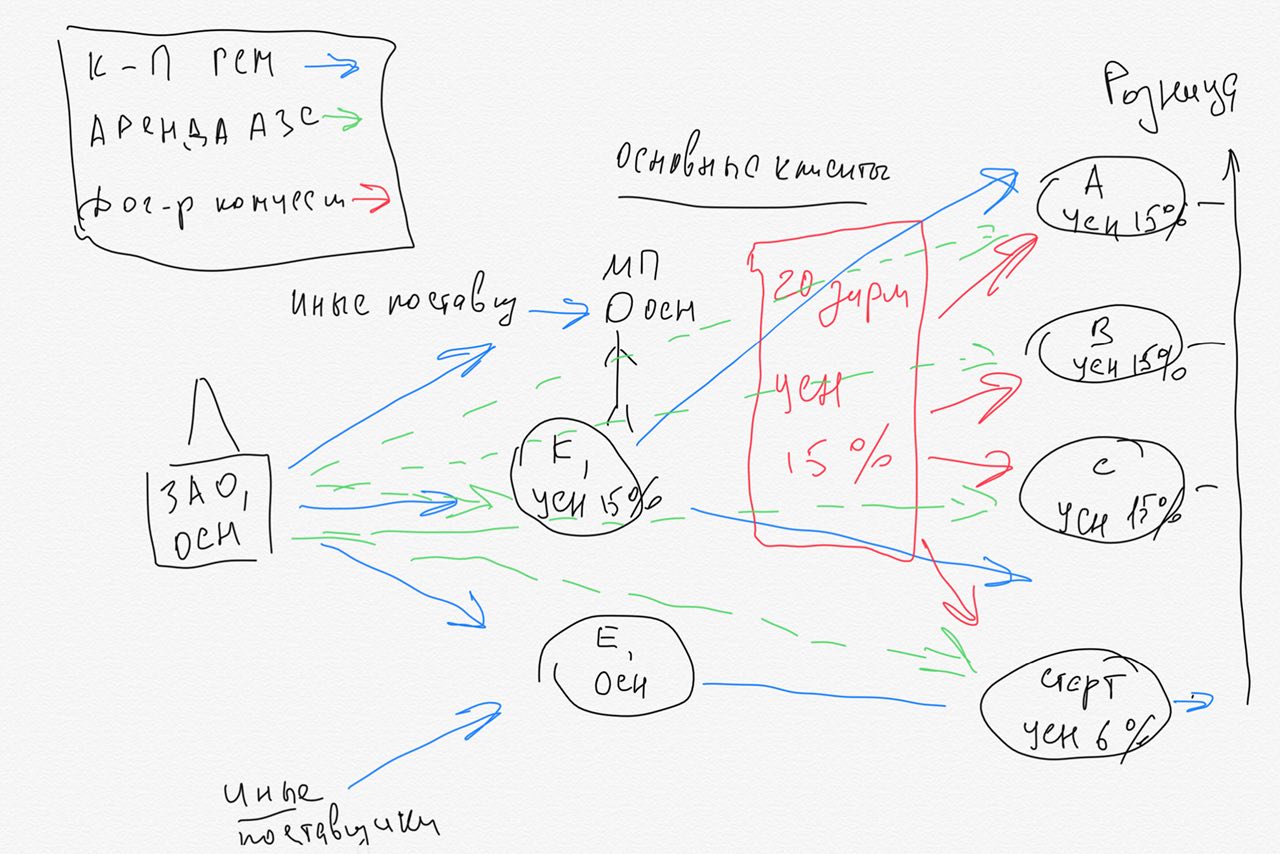 К-П ГСМ
АРЕНДА АЗС
Дог-р комисси
Розница
основные клиенты
А
усн 15%
МП
О осн
иные поставщ
20 фирм
усн
15%
В
усн 15%
С
усн 15%
ЗАО,
осн
Е,
усн 15%
Е,
осн
старт
усн 6%
иные
поставщики